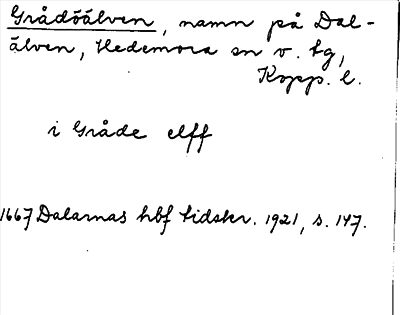 Grådöälven, namn på Dal-
älven, Hedemora sn v. bg,
Kopp. l.
i Gråde elff
1667 Dalarnas hbf tidskr. 1921, s. 147.